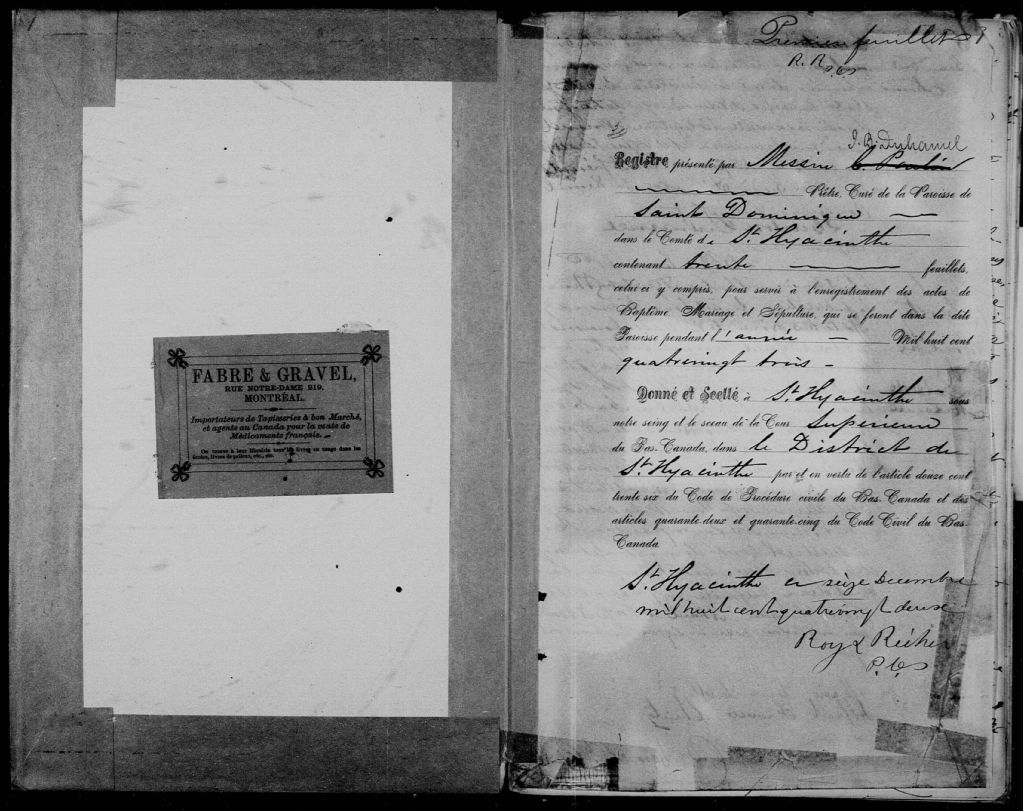 FABRE & GRAVEL,
RUE NOTRE-DAME 219,
MONTRÉAL.
Importateurs de Tapisseries à bon Marché,
et agents au Canada pour la vente de
Médicaments français.
On trouve à leur librairie tous les livres en usage dans les
écoles, livres de prières, etc., etc.
Premier feuillet
R. R
P.C.S
J. B. Duhamel
Registre présenté par Messire
Prêtre, Curé de la Paroisse de
Saint Dominique
dans le Comté de St. Hyacinthe
contenant trente feuillets,
celui-ci y compris, pour servir à l'enregistrement des actes de
Baptême, Mariage et Sépulture, qui se feront dans la dite
Paroisse pendant l'année Mil huit cent
quatrevingt trois -
Donné et Scellé à St. Hyacinthe sous
notre seing et le sceau de la Cour Supérieure
du Bas-Canada, dans le District de
St. Hyacinthe par et en vertu de l'article douze cent
trente-six du Code de Procédure civile du Bas-Canada et des
articles quarante-deux et quarante-cinq du Code Civil du Bas-
Canada.
St. Hyacinthe ce seize Decembre
mil huit cent quatrevingt deux
Roy &
P.C.S